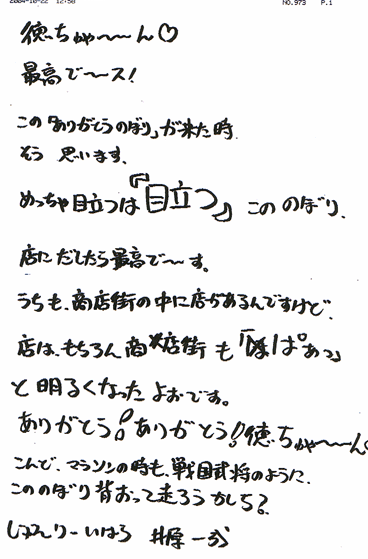 2004-10-22 12:58 NO.973 P.1
徳ちゃ〜〜ん♡
最高で〜〜ス!
この「ありがとうのぼり」が来た時
そう 思います、
めっちゃ目立つは『目立つ』 この のぼり、
店に だしたら最高で〜〜す。
うちも、商店街の中に店があるんですけど、
店は、もちろん 商店街 も 「ぱぁっ」
と 明るくなった よおです。
ありがとう!ありがとう!!徳ちゃ〜〜ん
こんで、マラソンの時も、戦国武将のように、
こののぼり 背おって走ろうかしら?
じゅんりーいはら 井原